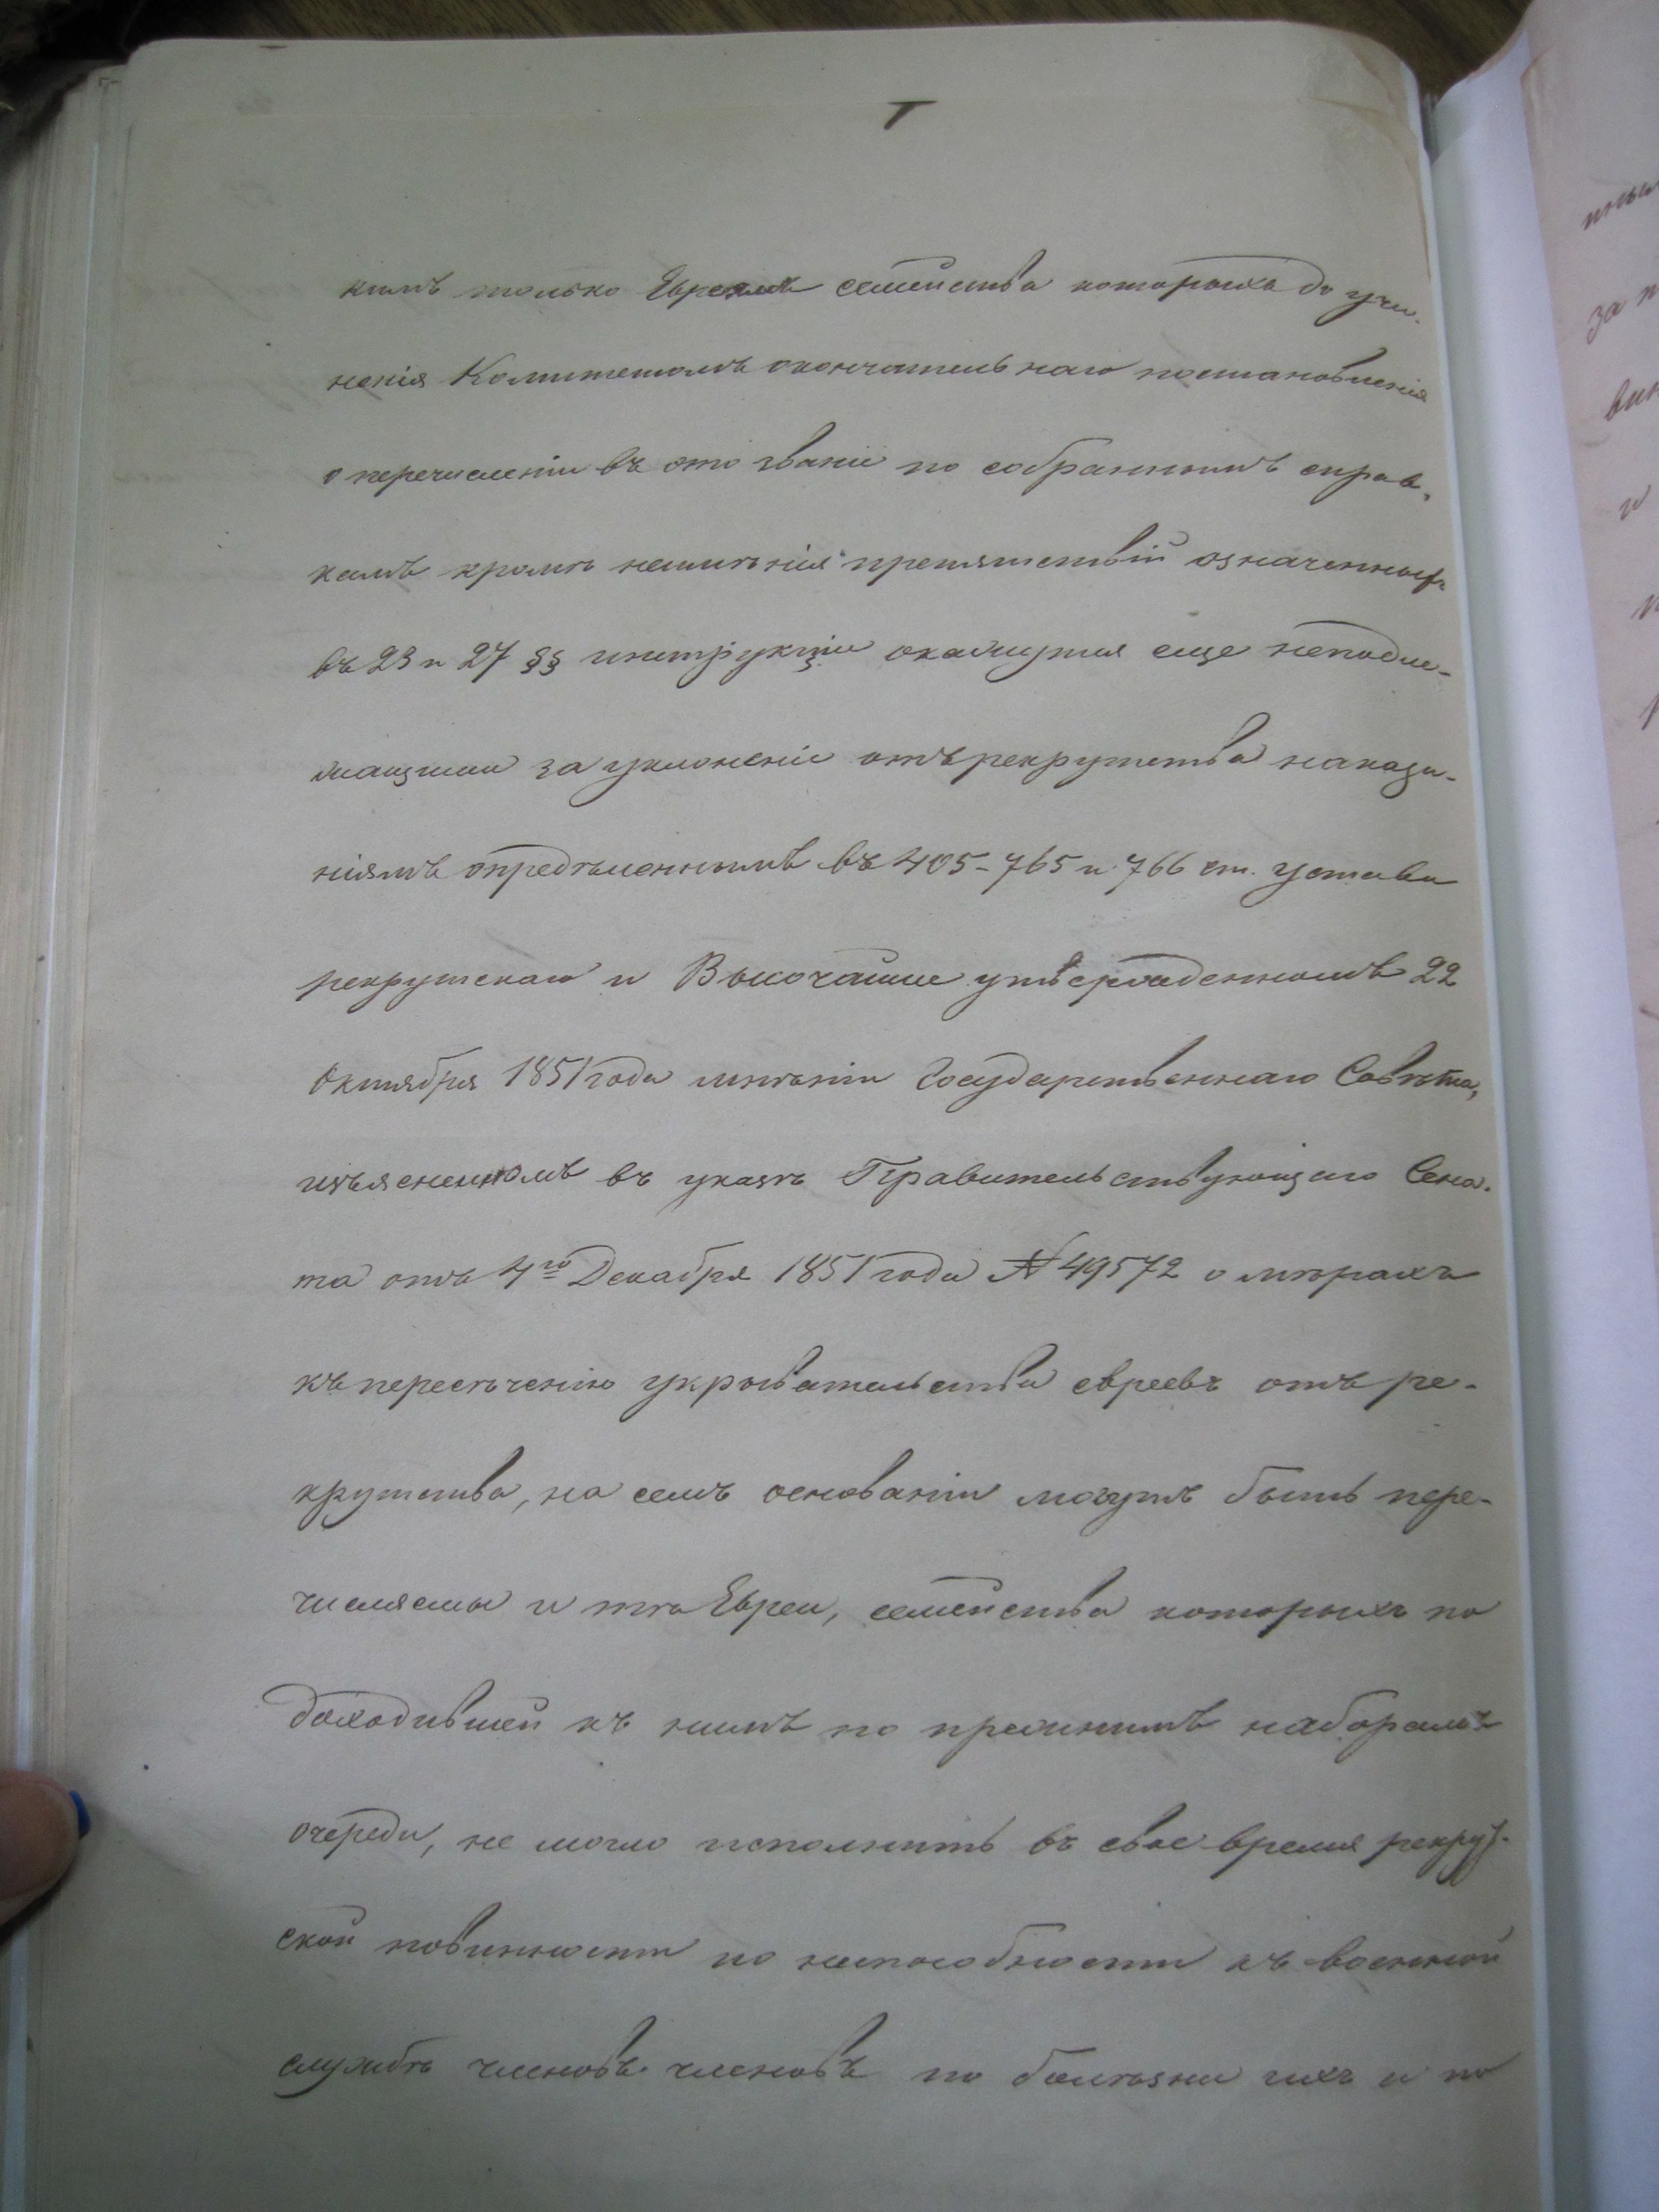 кимъ только Евреямъ семейства которыхъ до учи-
ненія Комитетомъ окончательнаго постановленія
о перечисленіи въ это званіе по собраннымъ справ-
камъ кромѣ неимѣнія препятствій означенныхъ
въ 23 и 27 §§ инструкціи окажутся еще неподле-
жащими за уклоненіе отъ рекрутства наказа-
ніямъ опредѣленнымъ въ 405-765 и 766 ст. устава
рекрутскаго и Высочайше утвержденномъ 22
Октября 1851 года мнѣніи Государственнаго Совѣта,
изъясненномъ въ указѣ Правительствующаго Сена-
та отъ 4го Декабря 1851 года № 49572 о мѣрахъ
къ пересѣченію укрывательства евреевъ отъ ре-
крутства, на семъ основаніи могутъ быть пере-
числяемы и тѣ Евреи, семейства которыхъ по
доходившей къ нимъ по прежнимъ наборамъ
очереди, не могло исполнить въ свое время рекрут-
ской повинности по неспособности къ военной
службѣ членовъ членовъ по болѣзни ихъ и по
за
и